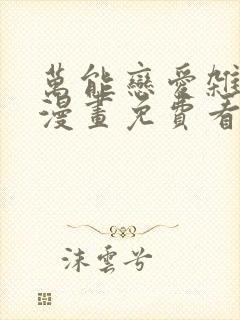 萬能戀愛雜
漫畫免費看
沫雲兮